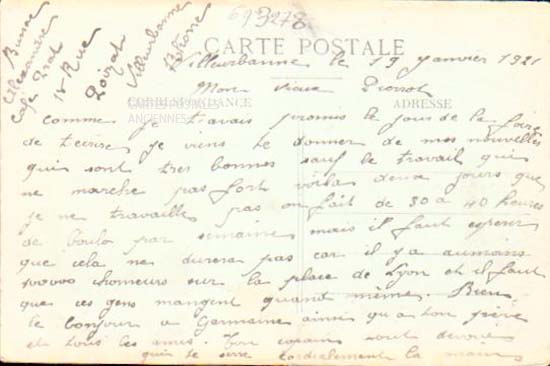 693278
CARTE POSTALE
CORRESPONDANCE
ADRESSE
ANCIENNES
Alexandre
Café
Rue
Villeurbanne
Rhône
Villeurbanne le 19 Janvier 1921
Mon vieux Pierrot
comme je t'avais promis le jour de la foire
de t'ecrire je viens te donner de mes nouvelles
qui sont tres bonnes sauf le travail qui
ne marche pas fort voila deux jours que
je ne travailles pas on fait de 30 a 40 heures
de boulo par semaine mais il faut esperer
que cela ne durera pas car il y a aumoins
100000 chomeurs sur la place de Lyon et il faut
que ces gens mangent quand même. Bien
le bonjour a Germaine ainsi qu'a ton frère
et tous les amis. Ton copain tout devoué
qui te serre cordialement la main